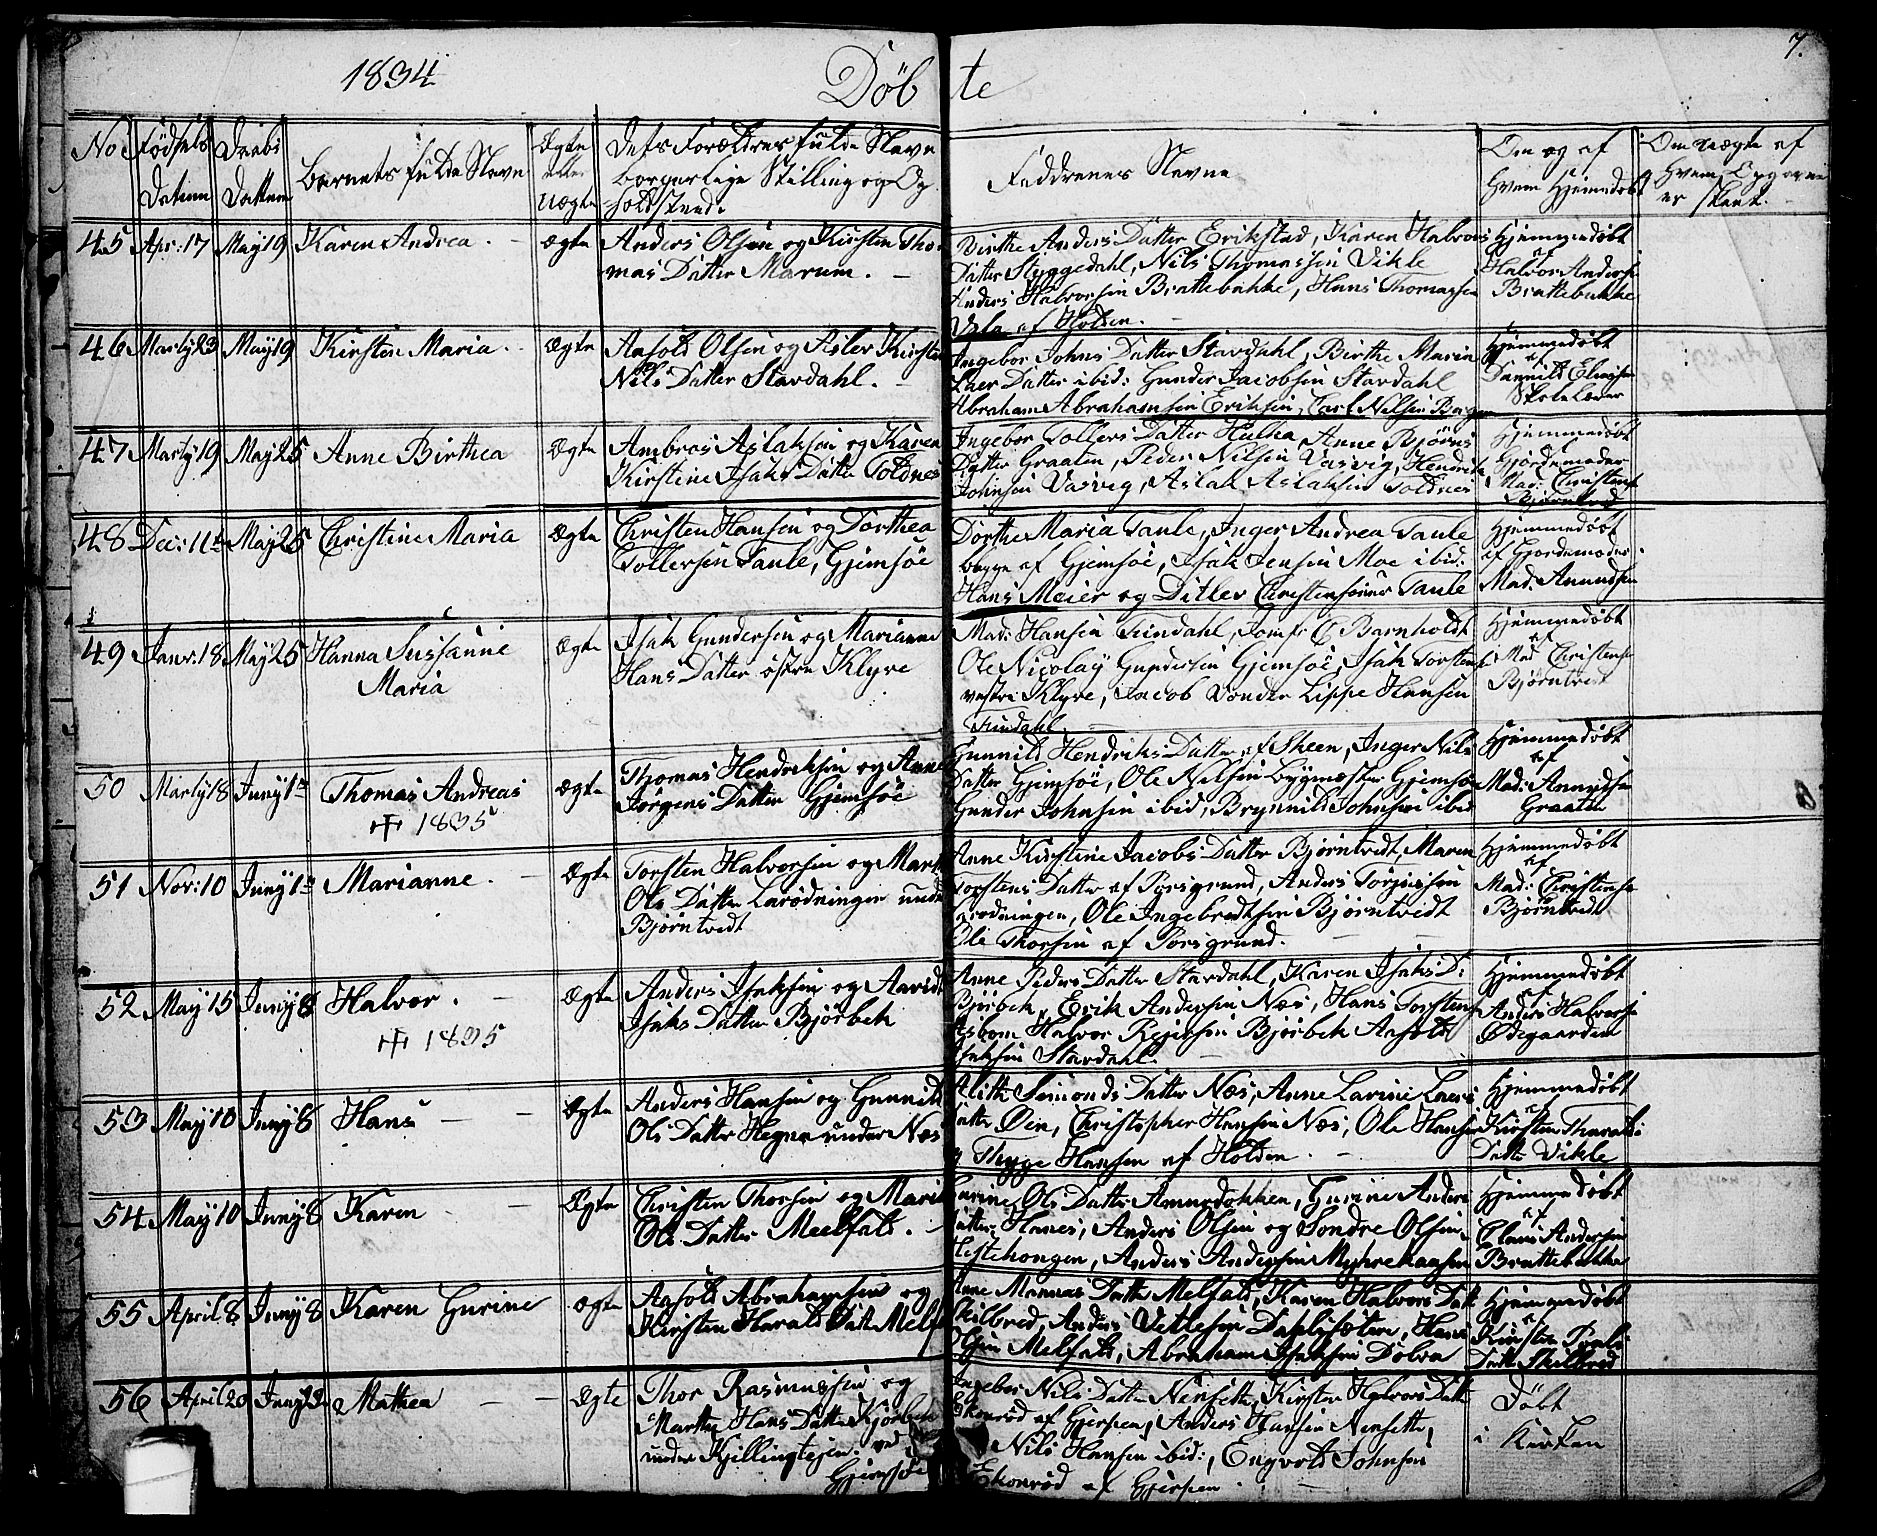 1834 Døbte 7.
No Fødsels Datum Daabs Dattum Barnets fulde Navn Ægte eller Uægte Dets Forældres fulde Navn borgerlige Stilling og Opholdstende Faddrenes Navne Om og af Hvem Hjemmedøbt Om uægte af Hvem Opgavene er skeet.
45 Apr: 17 May 19 Karen Andrea. ægte
Anders Olsen og Kirsten Tho-
mas Datter Marum.
Birthe Anders Datter Erikstad, Karen Halvors
Datter Styggedahl, Nils Thomassen Vikle
Anders Halvorsen Brattebakke, Hans Thomassen
Vala af Holden.
Hjemmedøbt
af
Halvor Anderse
Brattebakke
46 Marty 23 May 19 Kirsten Maria. Ægte
Aasold Olsen og Aslev Kirsten
Nils Datter Stavdahl.
Ingebor Johns Datter Stavdahl, Birthe Maria
Laers Datter ibid: Gunder Jacobsen Stavdahl
Abraham Abrahamsen Eriksen, Carl Nilsen
Hjemmedøbt
af
Dannild Eliassen
Skolelærer
47 Marty 19 May 25 Anne Birthea Ægte
Ambros Aslaksen og Karen
Kirstine Isaks Datte Toldnes
Ingebor Tollers Datter Anne Bjørns
Datter Graaten, Peder Nilsen Vasvig, Hendrik
Johnsen Vasvig, Aslak Aslaksen Toldnes
Hjemmedøbt
Gjordemoder
Mad: Christense
Bjørntved
48 Dec: 11te May 25 Christine Maria Ægte
Christen Hansen og Dorthea
Tollersen Taule, Gjemsøe
Dorthe Maria Taule, Inger Andrea Taule
begge af Gjemsøe, Isak Jensen Moe ibid:
Hans Meier og Ditlev Christensønner Taule
Hjemmedøbt
af Gjordemoder
Mad. Amundsen
49 Janv: 18 May 25 Hanna Susanne
Maria
Ægte
Isak Gundersen og Marianne
Hans Datter østre Klyve
Mad: Hansen Trindahl, Jomfr C Barnholdt
Ole Nicolay Gundersen Gjemsøe, Isak Torstens
vestre Klyve, Jacob Vonder Lippe Hansen
Trindahl
Hjemmedøbt
af
Mad Christense
Bjørntvedt
50 Marty 18 Juny 1ste Thomas Andreas
+ 1835
ægte
Thomas Hendriksen og Anne
Jørgens Datter Gjemsøe
Gunnild Hendriks Datter af Skeen, Inger Nils
Datter Gjemsøe, Ole Nilsen Bygmester Gjemsøe
Gunder Johnsen ibid, Brynnild Johnsen ibid
Hjemmedøbt
af
Mad: Amundsen
Graaten
51 Nov: 10 Juny 1ste Marianne. Ægte
Torsten Halvorsen og Mar
Ols Datter Larødningen unde
Bjørntvedt
Anne Kirstine Jacobs Datter Bjørntvedt, Maren
Torstens Datter af Porsgrund, Anders Torjussen
Larødningen, Ole Ingebredtsen Bjørntvedt
Ole Thorsen af Porsgrund.
Hjemmedøbt
af
Mad: Christense
Bjørntvedt
52 May 15 Juny 8 Halvor.
+ 1835
Ægte
Anders Isaksen og
Isaks Datter Bjørbek
Anne Peders Datter Stavdahl, Karen Isaks D:
Bjørbek, Erik Andersen Næs, Hans Torstens
Halvor Rejersen Bjørbek Aasold
Isaksen Stavdahl.
Hjemmedøbt
af
Anders Halvorse
Ødegaarden
53 May 10 Juny 8 Hans Ægte
Anders Hansen og Gunnild
Ols Datter Hegna under Næs
Simonds Datter Næs, Anne Larine Laers
Datter Øen, Christopher Hansen Næs, Ole Hansen
Thyge Hansen af Holden.
Hjemmedøbt
af
Kirsten Tharalds
Datte Vikle
54 May 10 Juny 8 Karen Ægte
Christen Thorsen og Mari
Ols Datter Melfald.
Gurine Ols Datter Gurine Anders
Datter Hanes, Anders Olsen og Sondre Olsen
Anders Andersen Myhrehaagen
Hjemmedøbt
af
Claus Andersen
Brattebakke
55 April 8 Juny 8 Karen Gurine ægte
Aasold Abrahamsen og
Kirsten Haralds Datt Melf
Anne Mannas Datte Melfald, Karen Halvors Datt
Skilbred, Anders Vetlesen Dahlsøtera, Hans
Olsen Melfald, Abraham Isaksen Dolva
Hjemmedøbt
af
Kirsten
Datte Skilbred
56 April 20 Juny 12 Mathea Ægte
Thor Rasmussen og
Marthe Hans Datter Kjørbek
under Kjillingtejen ved
Gjemsøe
Ingebor Nils Datter Nensette, Kirsten Halvors Datte
Ekornrød af Gjerpen, Anders Hansen Nensette,
Nils Hansen ibid:, Engvold Johnsen
Ekornrød af Gjerpen.
Døbt
i Kirken